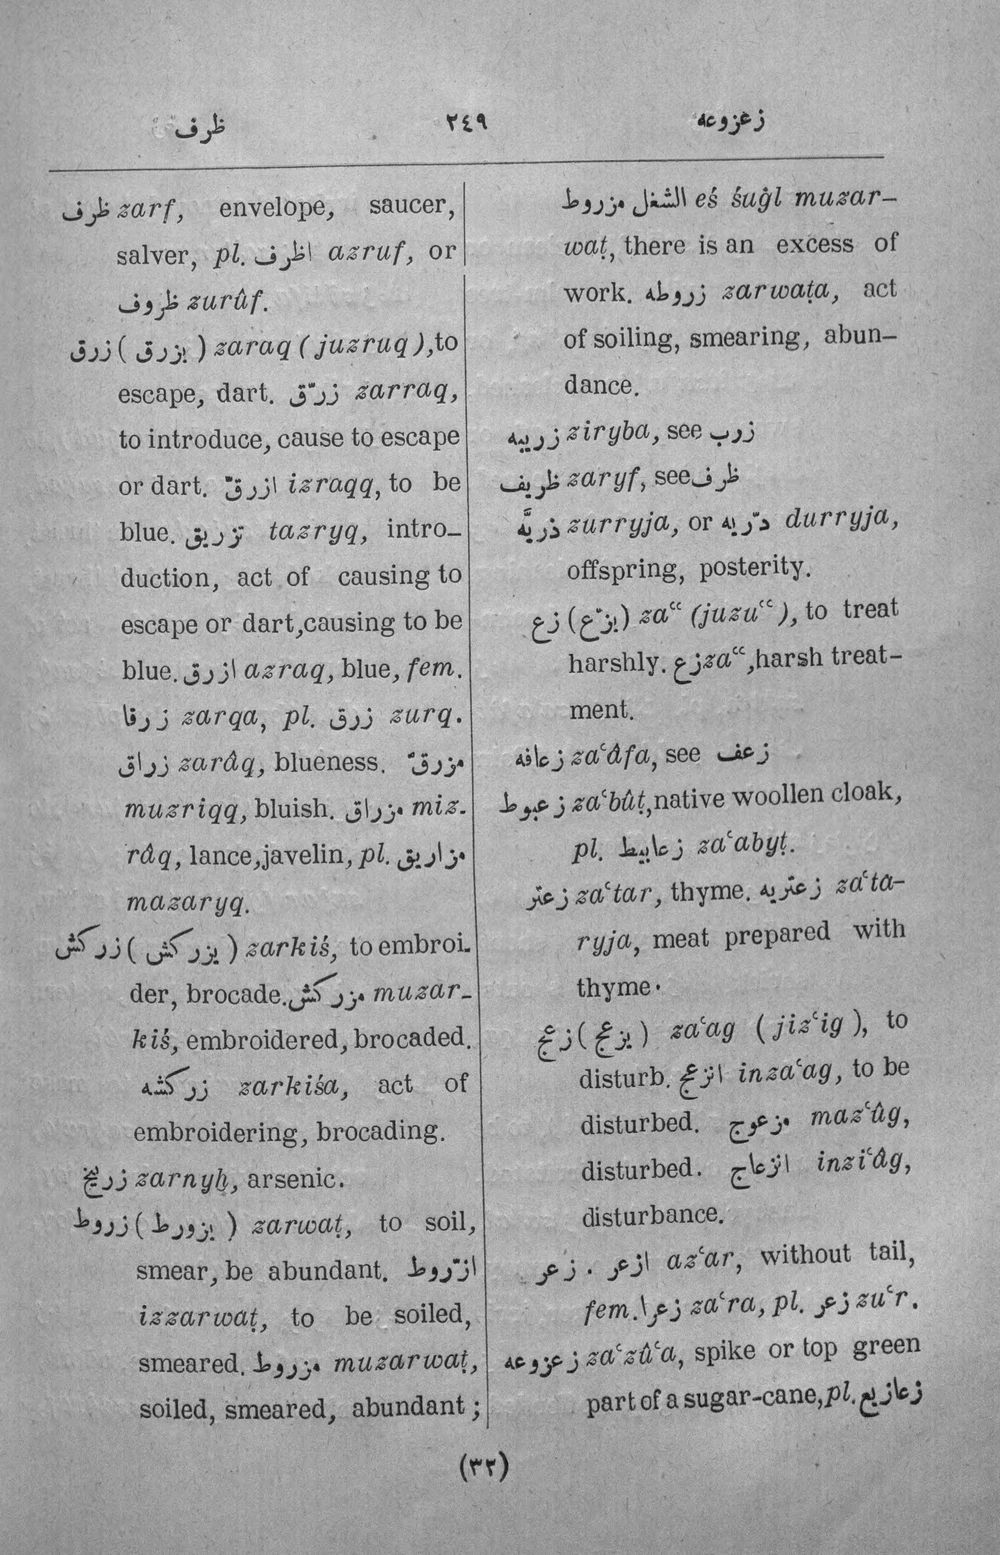 ظرف ٢٤٩ زعزوعه
ظرف zarf, envelope, saucer,
salver, pl. اظرف azruf, or
ظروف zurûf.
زرق (يزرق) zaraq (juzruq), to
escape, dart. زرّق zarraq,
to introduce, cause to escape
or dart. ازرقّ izraqq, to be
blue. تزريق tazryq, intro-
duction, act of causing to
escape or dart, causing to be
blue. ازرق azraq, blue, fem.
زرقا zarqa, pl. زرق zurq.
زراق zarâq, blueness. مزرقّ
muzriqq, bluish. مزراق miz-
râq, lance, javelin, pl. مزاريق
mazaryq.
زركش (يزركش) zarkiś, to embroi-
der, brocade. مزركش muzar-
kiś, embroidered, brocaded.
زركشه zarkiśa, act of
embroidering, brocading.
زرنيخ zarnyḫ, arsenic.
زروط (يزورط) zarwaṭ, to soil,
smear, be abundant. ازّروط
izzarwaṭ, to be soiled,
smeared. مزروط muzarwaṭ,
soiled, smeared, abundant;
الشغل مزروط eś śuġl muzar-
waṭ, there is an excess of
work. زروطه zarwaṭa, act
of soiling, smearing, abun-
dance.
زريبه ziryba, see زرب
ظريف zaryf, see ظرف
ذريَّه zurryja, or درّيه durryja,
offspring, posterity.
زع (يزّع) zaʿʿ (juzuʿʿ), to treat
harshly. زع zaʿʿ, harsh treat-
ment.
زعافه zaʿâfa, see زعف
زعبوط zaʿbûṭ, native woollen cloak,
pl. زعابيط zaʿabyṭ.
زعتر zaʿtar, thyme. زعتريه zaʿta-
ryja, meat prepared with
thyme.
زعج (يزعج) zaʿag (jizʿig), to
disturb. انزعج inzaʿag, to be
disturbed. مزعوج mazʿûg,
disturbed. انزعاج inziʿâg,
disturbance.
زعر . ازعر azʿar, without tail,
fem. زعرا zaʿra, pl. زعر zuʿr.
زعزوعه zaʿzûʿa, spike or top green
part of a sugar-cane, pl. زعازيع
(٣٢)